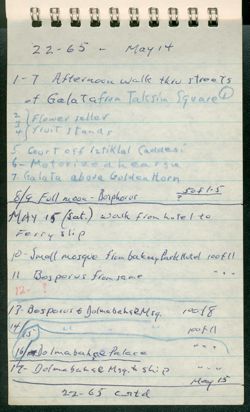 22-65 - May 14
1-7 Afternoon walk thru streets
of Galata from Taksim Square ①
2 Flower seller
3
4 Fruit stands
5 Court off Istiklal Caddesi
6- Motorized hearse
7 Galata above Golden Horn
8/9 Full moon - Bosphorus
MAY 15 (Sat.) walk from hotel to
Ferry slip
10- Small mosque from balcony Park Hotel 100 f11
11 Bosporus from same " "
12- ?
13- Bosporus & Dolmabahçe Msq. 100 f8
14/15 " " 100 f11
16/ Dolmabahçe Palace " "
17- Dolmabahçe Msq. & ship " "
May 15
22-65 cntd